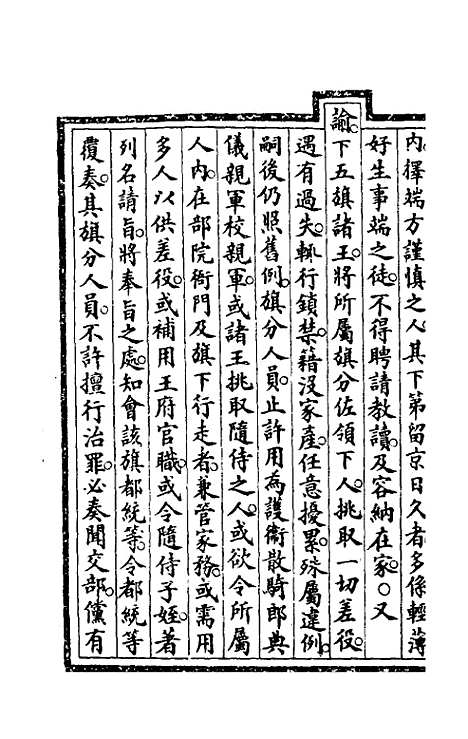 內。擇端方謹慎之人。其下第留京日久者。多係輕薄
好生事端之徒。不得聘請教讀。及容納在家。○又
諭。下五旗諸王。將所屬旗分佐領下人。挑取一切差役。
遇有過失。輒行鎖禁。籍沒家產。任意擾累。殊屬違例。
嗣後仍照舊例。旗分人員。止許用為護衛散騎郎典
儀親軍校親軍。或諸王挑取隨侍之人。或欲令所屬
人內。在部院衙門及旗下行走者。兼管家務。或需用
多人以供差役。或補用王府官職。或令隨侍子姪。著
列名請旨。將奉旨之處。知會該旗都統等。令都統等
覆奏。其旗分人員。不許擅行治罪。必奏聞交部。儻有